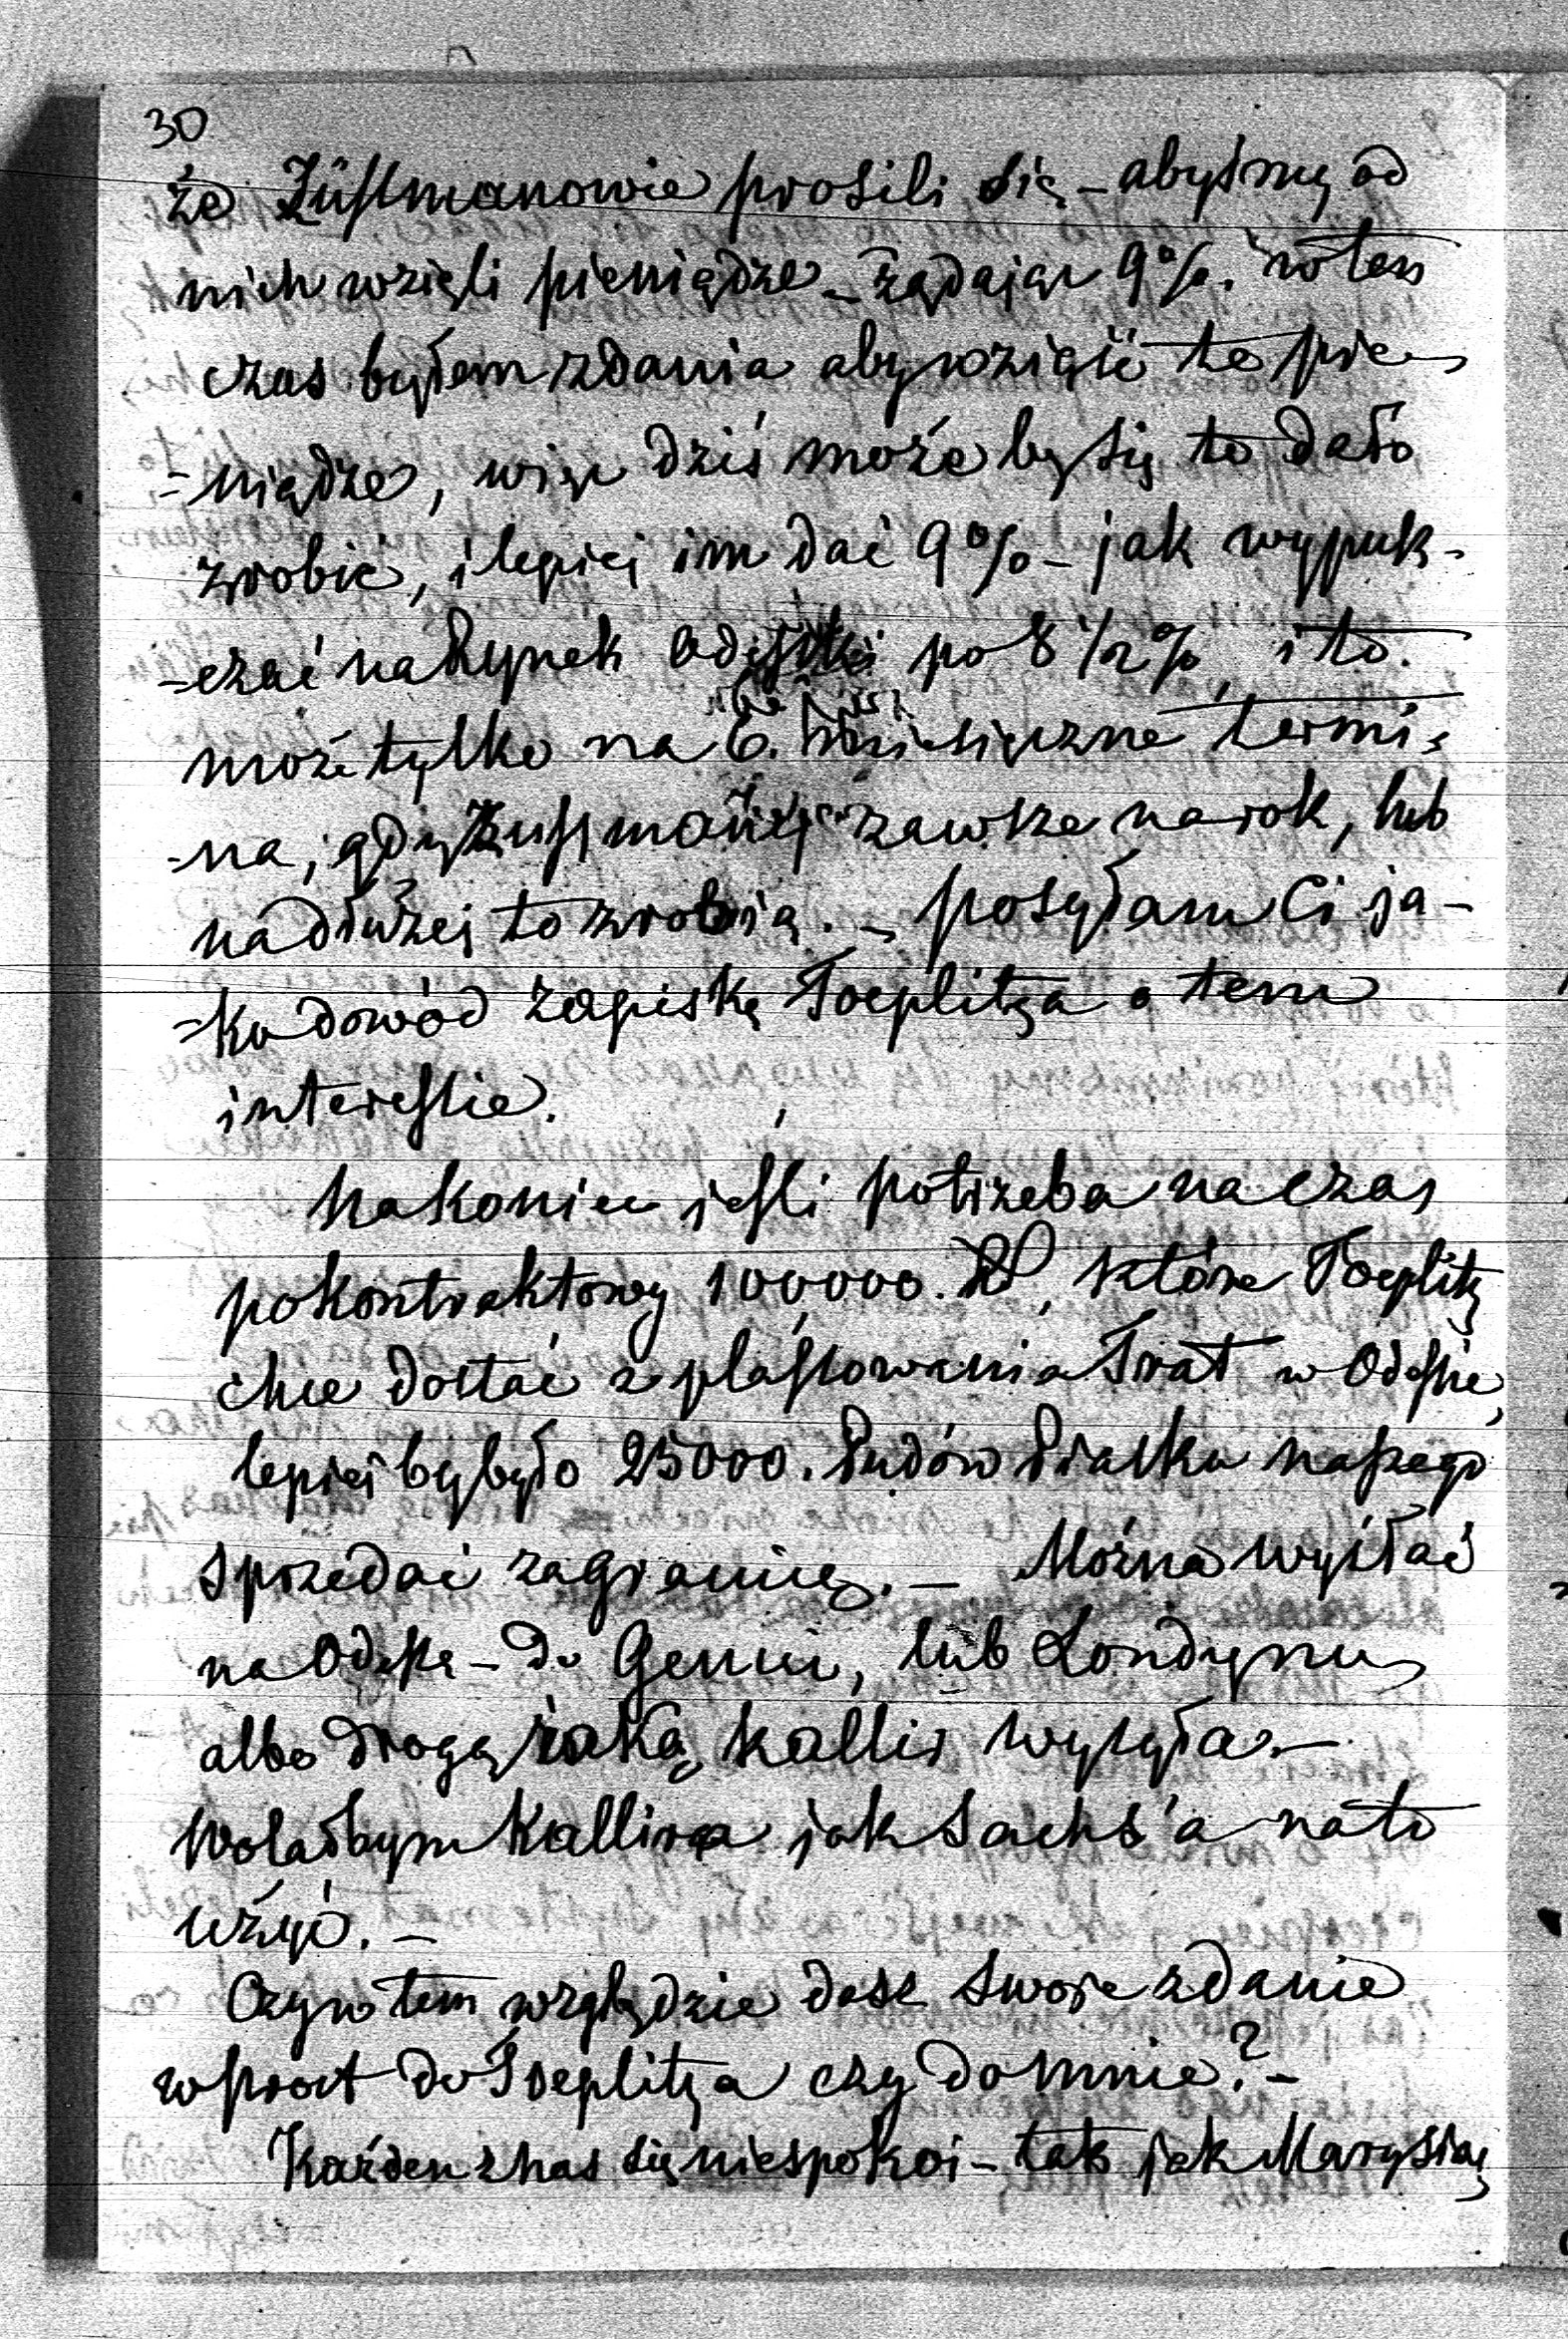 30
że Züssmanowie prosili się – abyśmy od
nich wzięli pieniądze – żądając 9%. w ten
czas byłem zdania aby wziąść te pie-
-niądze, więc dziś może by się to dało
zrobić, i lepiej im dać 9% – jak wypusk-
-czać na Rynek po 8 1/2 % i to
może tylko na 6. miesięczne termi-
-na, gdy zawsze na rok, lub
na dłużej to zrobią. – posyłam Ci ja-
-ko dowód zapiskę Toeplitza o tem
interessie.
Nakoniec jessli potrzeba na czas
pokontraktowy 100,000. które Toeplitz
chce dostać z plassowania Trat w Odessie,
lepiej by było 25000. Pudów Piasku naszego
sprzedać zagranicę. – Można wysłać
na Odessę – do Genui, lub Londynu,
albo drogą jaką Kallir wysyła. –
Wolałbym Kallira jak Sachs'a na to
użyć. –
Czy w tem względzie dasz swoje zdanie
wprost do Toeplitza czy do mnie? –
Każden z nas się niespokoi – tak jak Marysia,